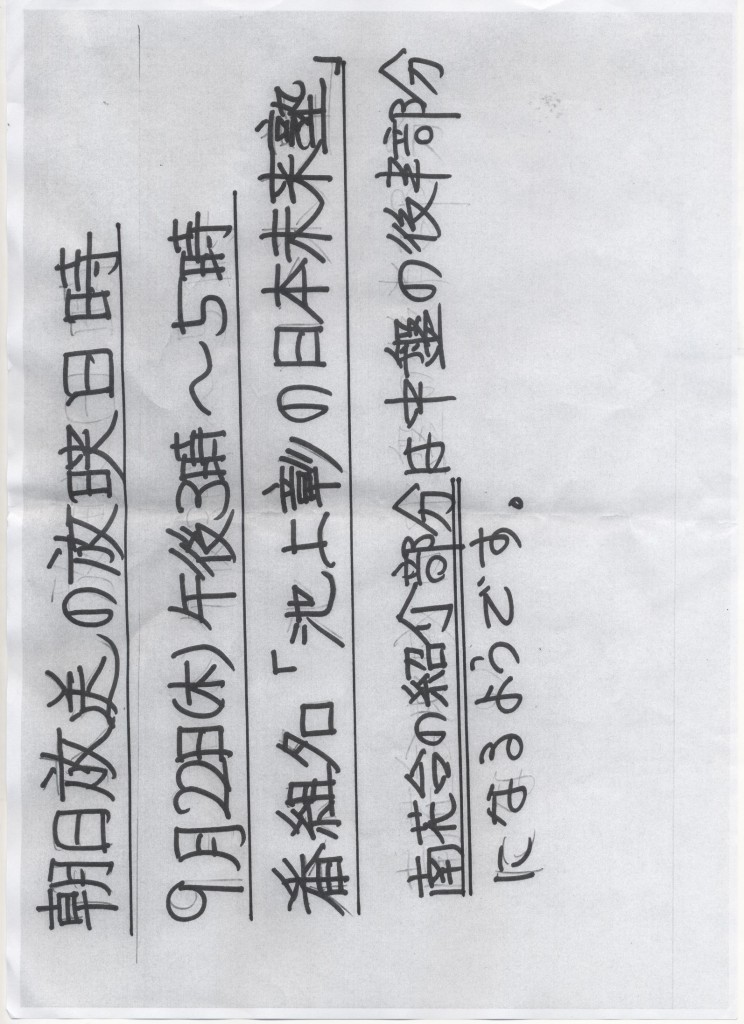 朝日放送の放映日時
9月22日(木)午後3時〜5時
番組名「池上彰の日本未来塾」
南花台の紹介部分は中盤の後半部分
になるようです。